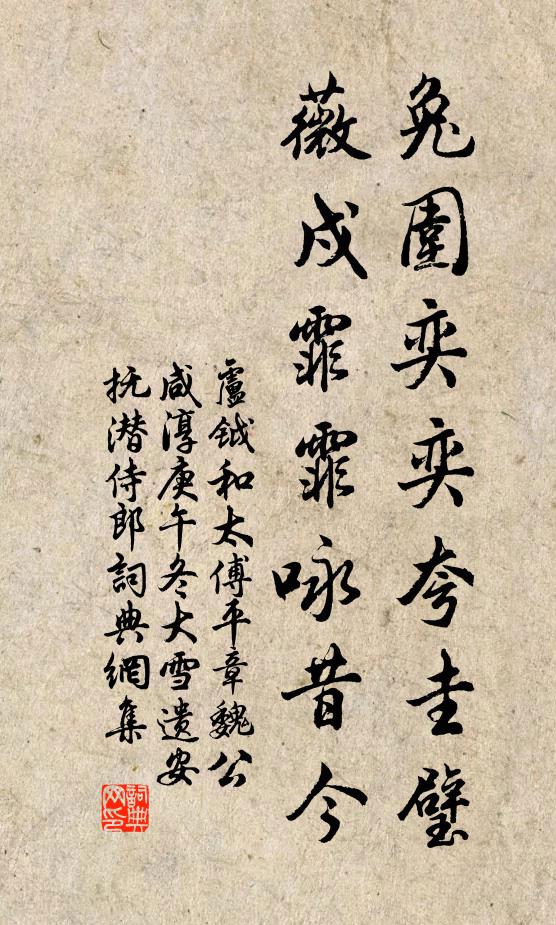 兔園奕奕夸圭璧
薇戍霏霏咏昔今
盧鉞和太傅平章魏公
咸淳庚午冬大雪遺安
抚潜侍郎詞典網集
詞典
网印